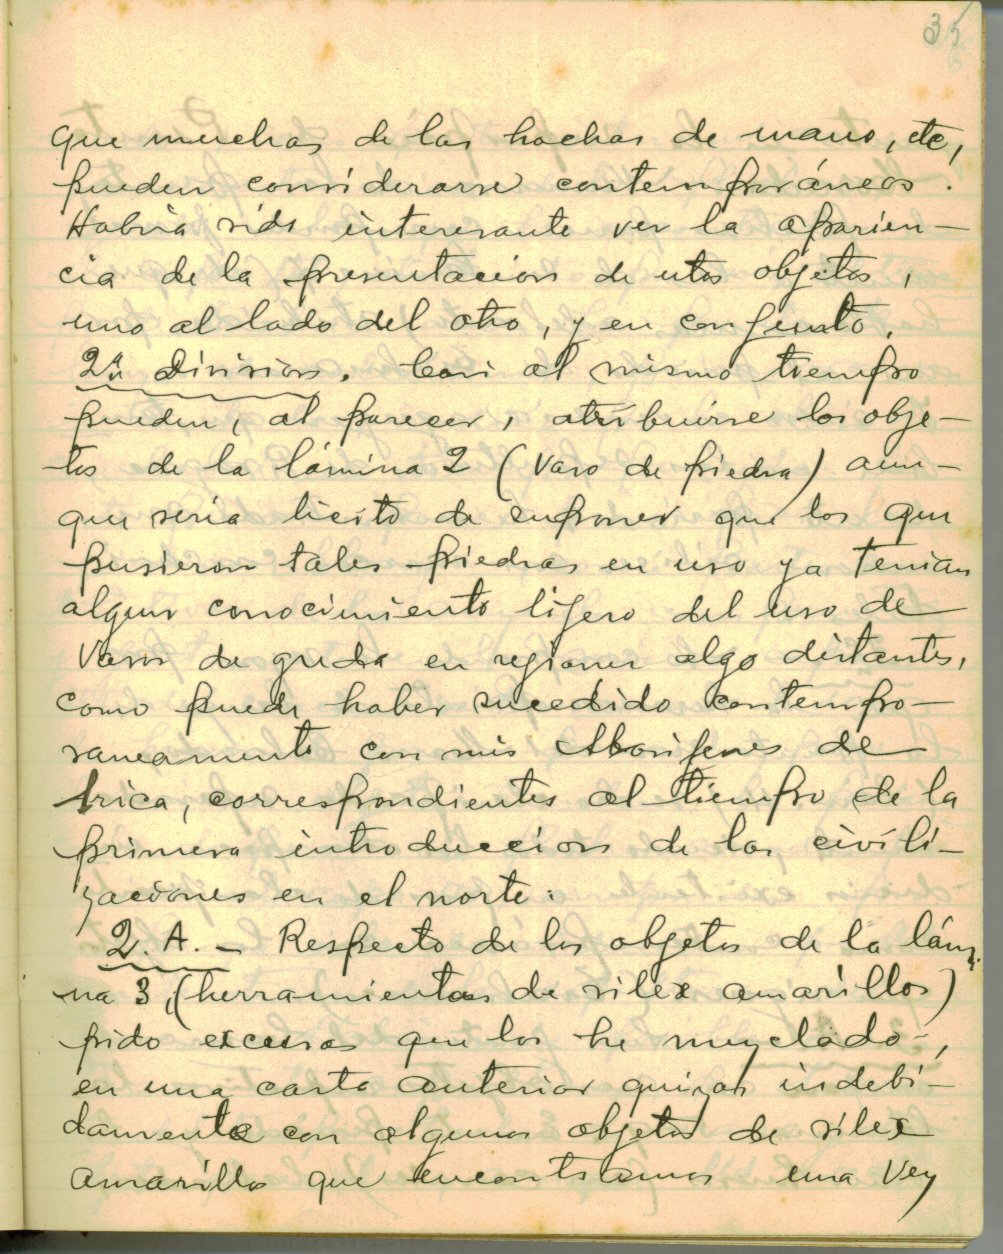 35
que muchas de las hachas de mano, etc,
pueden considerarse contemporáneas.
Habría sido interesante ver la aparien-
cia de la presentacion de estos objetos,
uno al lado del otro, y en conjunto.
2ª Division. Casi al mismo tiempo
pueden, al parecer, atribuirse los obje-
tos de la lámina 2 (Vaso de piedra) aun-
que seria licito de suponer que los que
pusieron tales piedras en uso ya tenian
algun conocimiento lijero del uso de
Vasos de greda en rejiones algo distantes,
como puede haber sucedido contempo-
raneamente con mis Aborijenes de
Arica, correspondientes al tiempo de la
primera introduccion de las civili-
zaciones en el norte.
2. A. - Respecto de los objetos de la lámi-
na 3, (herramientas de silex amarillos)
pido excusas que los he mezclado,
en una carta anterior quizas indebi-
damente con algunos objetos de silex
amarillo que encontramos una vez